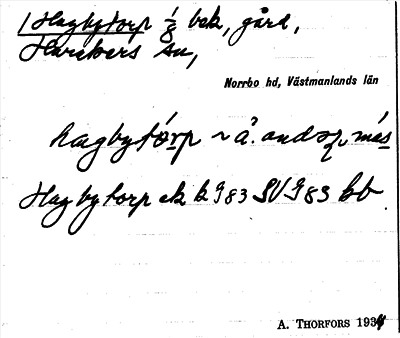 Hagbytorp 1/8 bek, gård,
Harakers sn,
Norrbo hd, Västmanlands län
hagbytórp ~ å.
Hagbytorp ek bl 983 SV 983 bb
A. THORFORS 1934